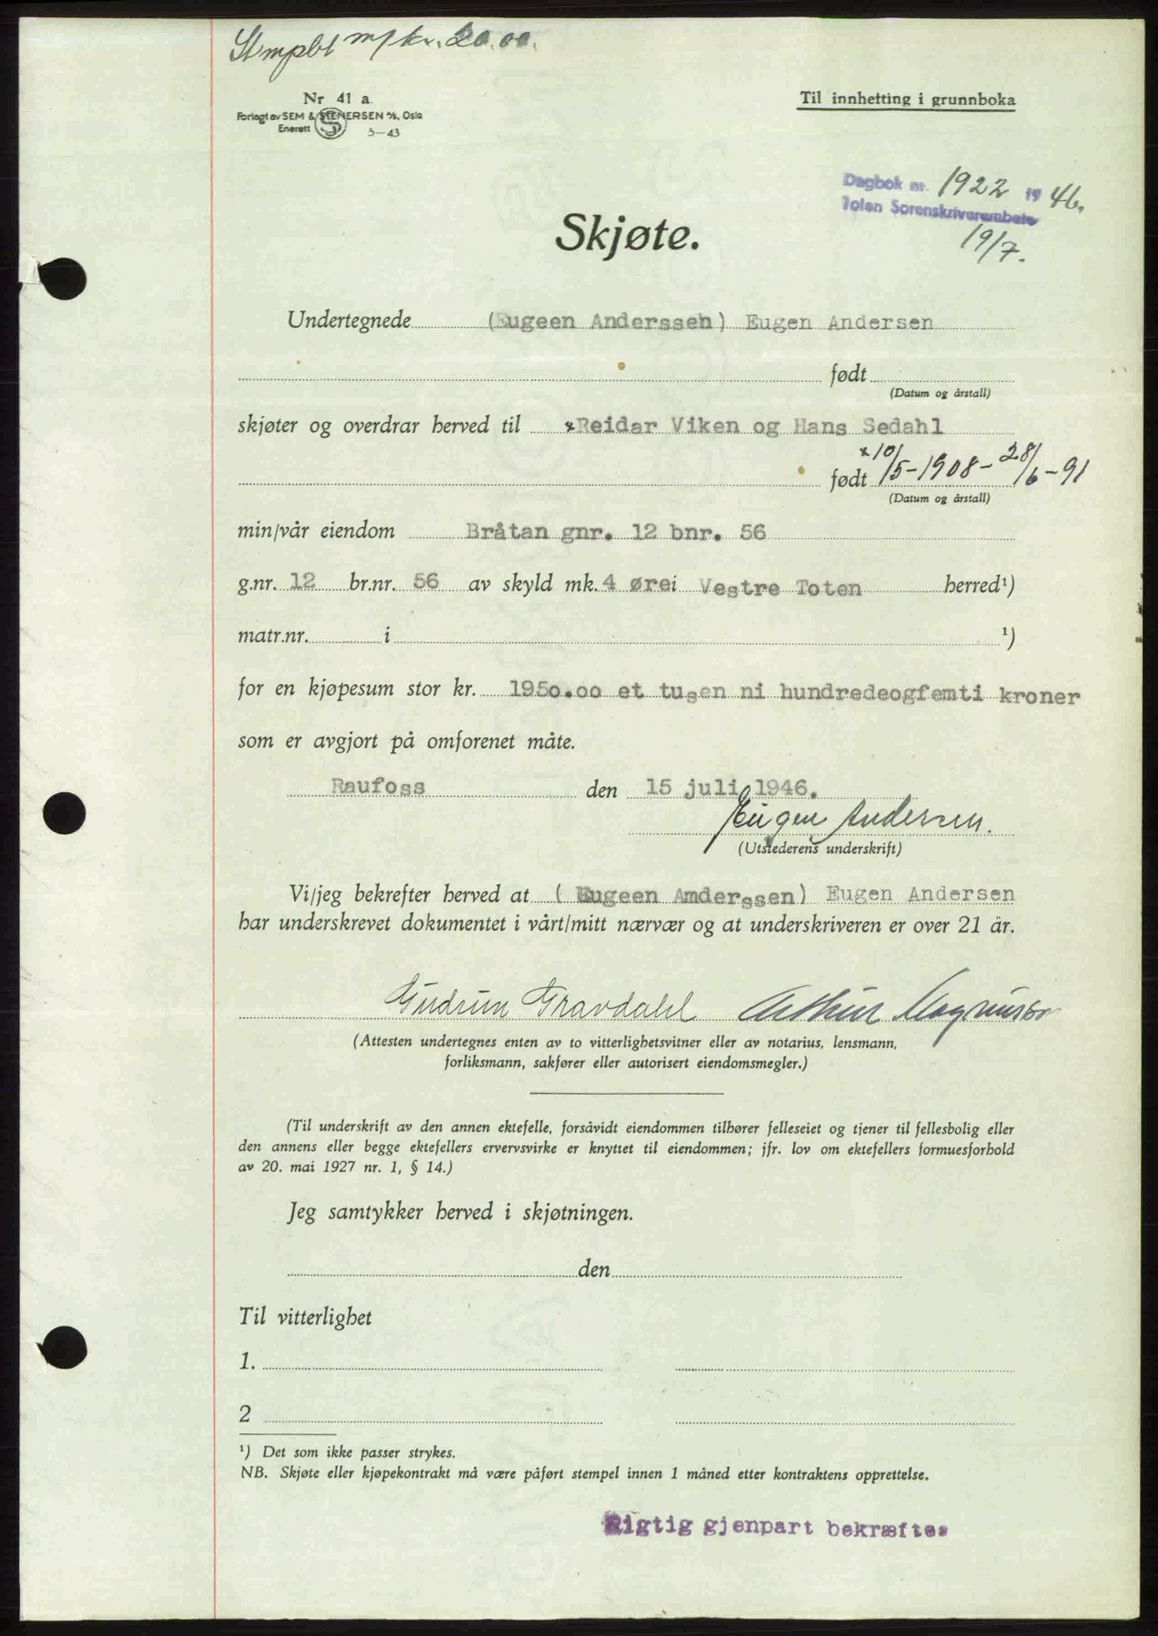 Stmplet m/kr. 20.00.
Nr 41 a
Forlagt av SEM & STENERSEN A/S, Oslo
Enerett 5—43
Til innhefting i grunnboka
Dagbok nr. 1922 1946.
Toten Sorenskriverembete
19/7.
Skjøte.
Undertegnede (Eugeen Anderssen) Eugen Andersen
født
(Datum og årstall)
skjøter og overdrar herved til xReidar Viken og Hans Sedahl
født x10/5-1908- 28/6-91
(Datum og årstall)
min/vår eiendom Bråtan gnr. 12 bnr. 56
g.nr. 12 br.nr. 56 av skyld mk. 4 øre i Vestre Toten herred¹)
matr.nr. i ¹)
for en kjøpesum stor kr. 1950.00 et tusen ni hundredeogfemti kroner
som er avgjort på omforenet måte.
Raufoss den 15 juli 1946.
Eugen Andersen.
(Utstederens underskrift)
Vi/jeg bekrefter herved at ( Eugeen Amderssen) Eugen Andersen
har underskrevet dokumentet i vårt/mitt nærvær og at underskriveren er over 21 år.
Gudrun Gravdahl Arthur Magnussen
(Attesten undertegnes enten av to vitterlighetsvitner eller av notarius, lensmann,
forliksmann, sakfører eller autorisert eiendomsmegler.)
(Til underskrift av den annen ektefelle, forsåvidt eiendommen tilhører felleseiet og tjener til fellesbolig eller
den annens eller begge ektefellers ervervsvirke er knyttet til eiendommen; jfr. lov om ektefellers formuesforhold
av 20. mai 1927 nr. 1, § 14.)
Jeg samtykker herved i skjøtningen.
den
Til vitterlighet
1.
2
¹) Det som ikke passer strykes.
NB. Skjøte eller kjøpekontrakt må være påført stempel innen 1 måned etter kontraktens opprettelse.
Rigtig gjenpart bekræftes